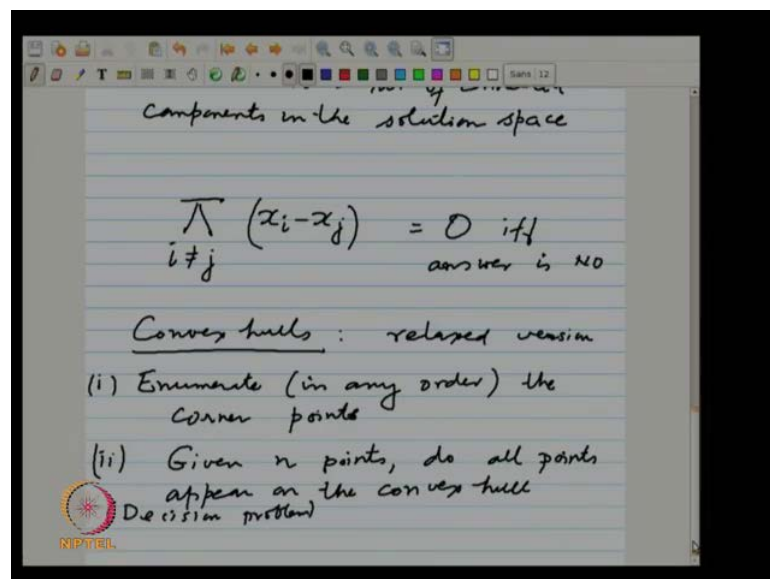 Sans 12
components in the solution space
∏ (xi - xj) = 0 iff
i ≠ j answer is NO
Convex hulls : relaxed version
(i) Enumerate (in any order) the
corner points
(ii) Given n points, do all points
appear on the convex hull
Decision problem
NPTEL